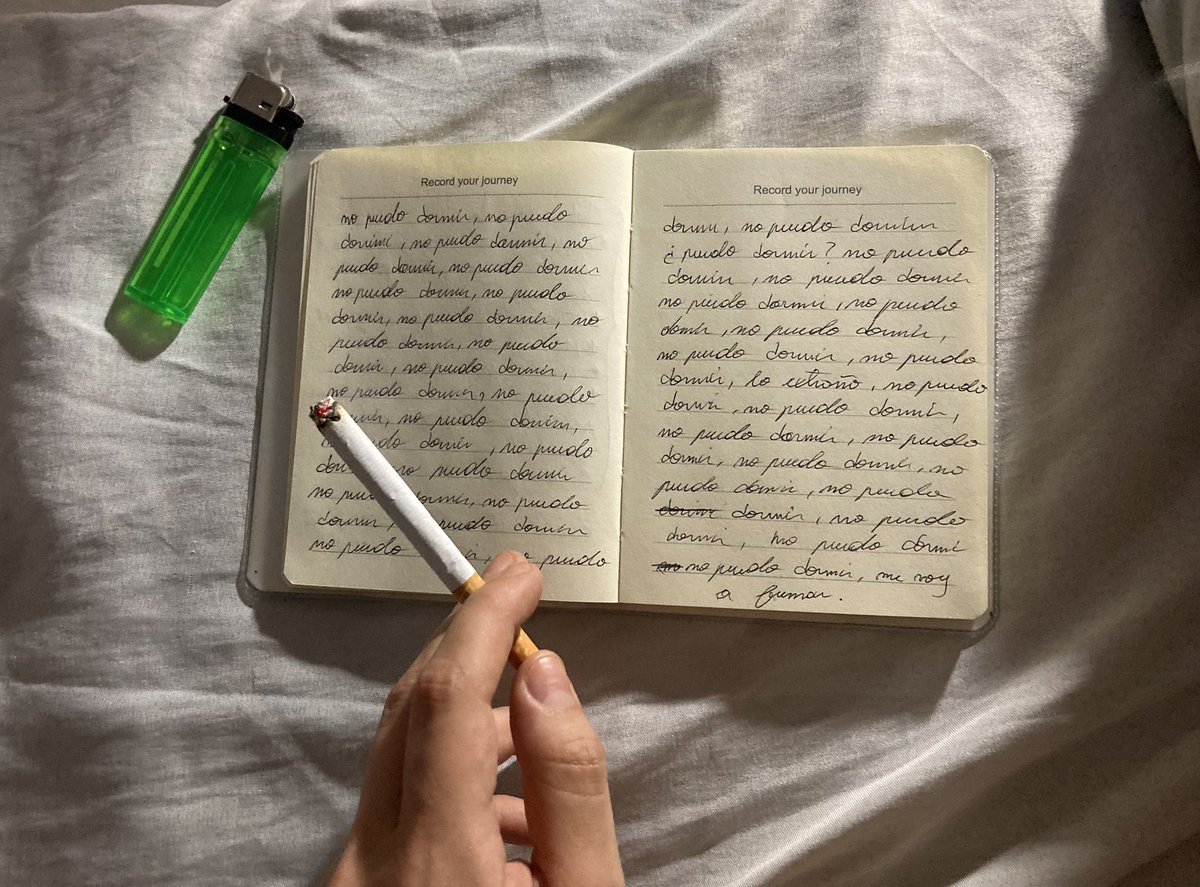 Record your journey
no puedo dormir, no puedo
dormir, no puedo dormir, no
puedo dormir, no puedo dormir
no puedo dormir, no puedo
dormir, no puedo dormir, no
puedo dormir, no puedo
dormir, no puedo dormir,
no puedo dormir, no puedo
no puedo dormir,
dormir, no puedo
no puedo dormir
no dormir, no puedo
dormir, puedo dormir
no puedo puedo
Record your journey
dormir, no puedo dormir
¿puedo dormir? no puedo
dormir, no puedo dormir
no puedo dormir, no puedo
dormir, no puedo dormir,
no puedo dormir, no puedo
dormir, lo extraño, no puedo
dormir, no puedo dormir,
no puedo dormir, no puedo
dormir, no puedo dormir, no
puedo dormir, no puedo
dormir dormir, no puedo
dormir, no puedo dormir
no puedo dormir, me voy
a fumar.